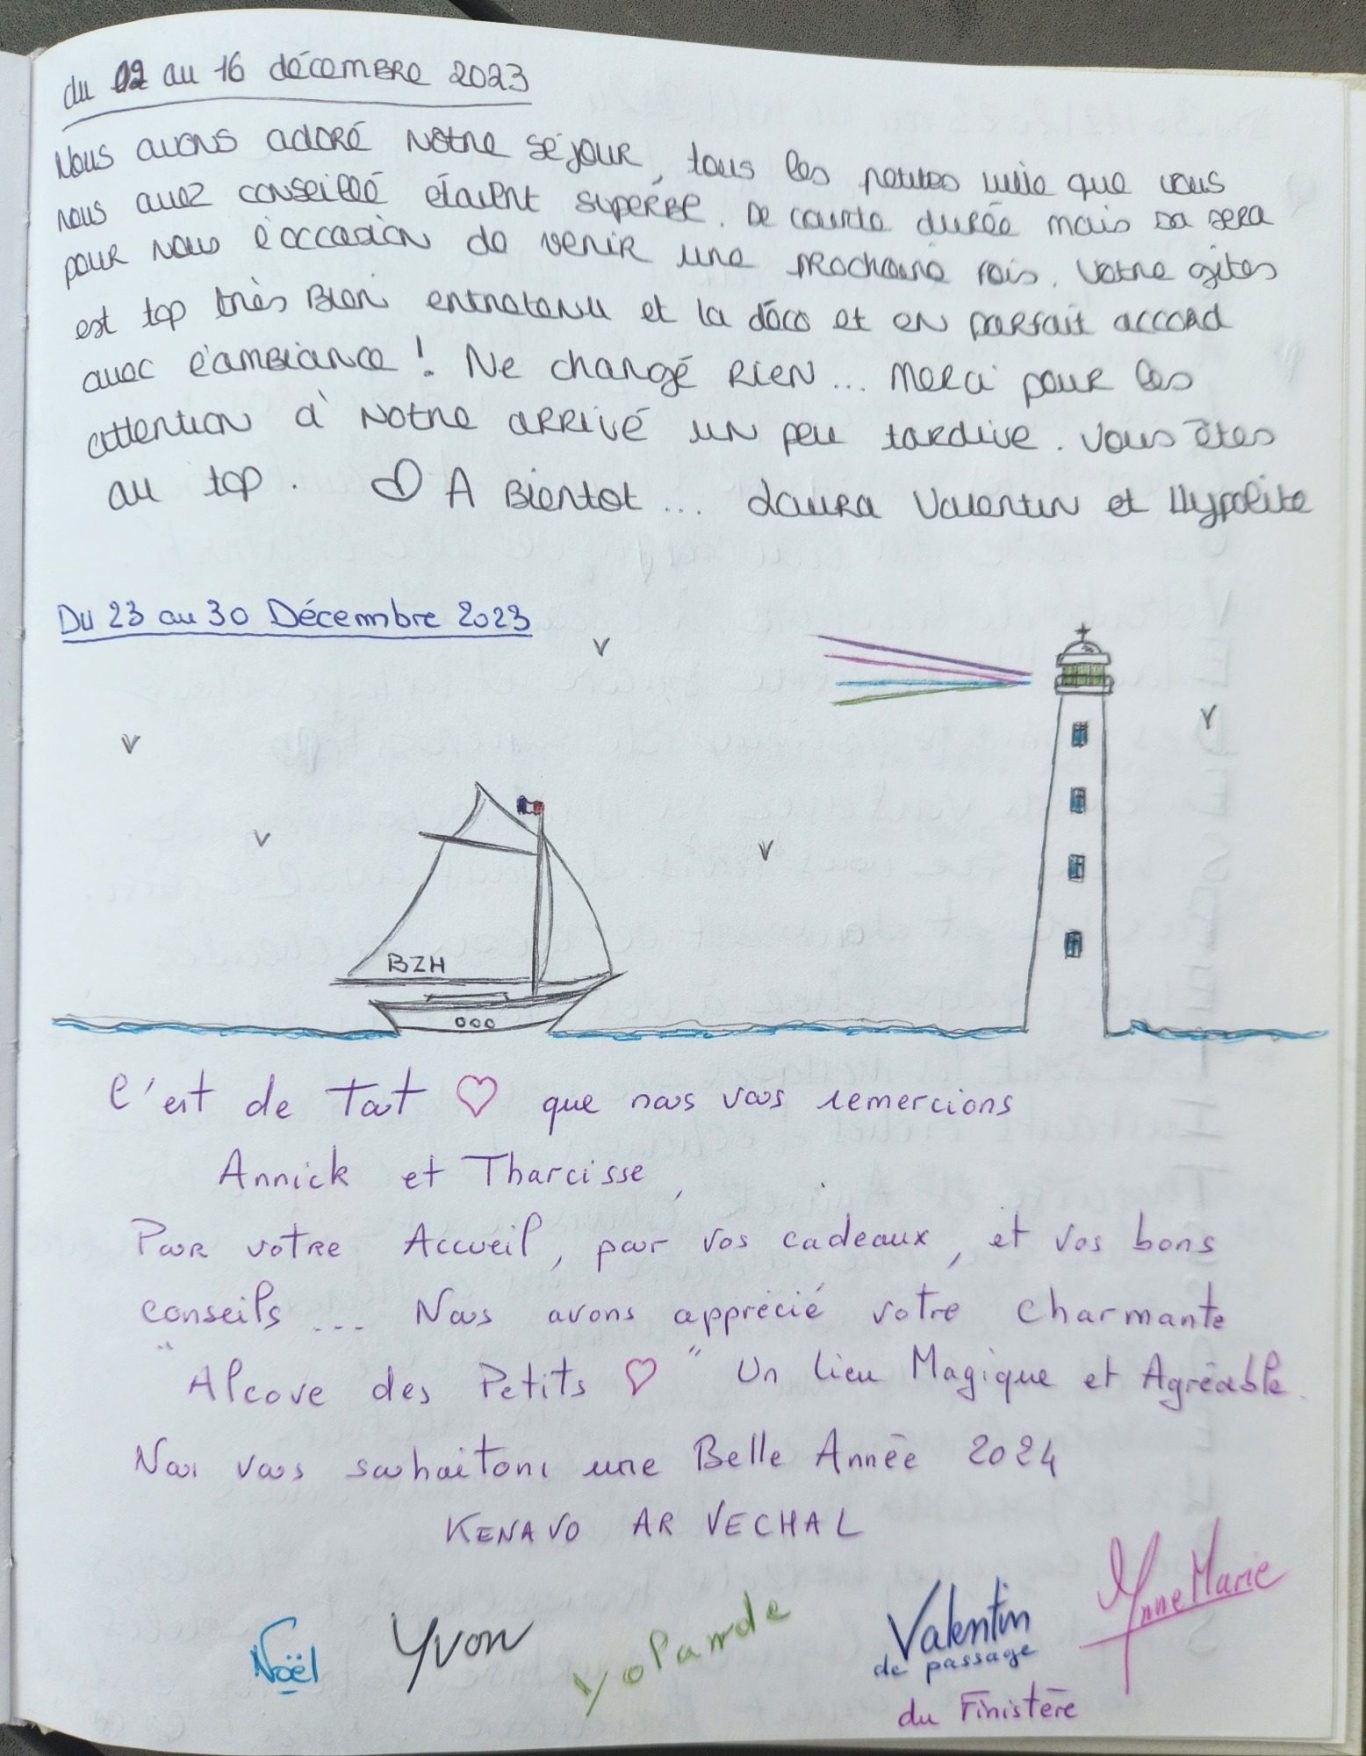 du 12 au 16 décembre 2023
Nous avons adoré notre séjour, tous les petites ville que vous
nous avez conseillé étaient superbe. De courte durée mais sa sera
pour nous l'occasion de venir une prochaine fois. Votre gîtes
est top très bien entretenu et la déco et en parfait accord
avec l'ambiance ! Ne changé rien... Merci pour les
attention à notre arrivé un peu tardive. Vous êtes
au top. A Bientot... Laura Valentin et Hypolite
Du 23 au 30 Décembre 2023
BZH
C'est de Tout ♡ que nous vous remercions
Annick et Tharcisse,
Pour votre Accueil, pour vos cadeaux, et vos bons
conseils... Nous avons apprécié votre charmante
"Alcove des Petits ♡" Un lieu Magique et Agréable.
Nous vous souhaitons une Belle Année 2024
KENAVO AR VECHAL
Noël Yvon Yolande Valentin Anne Marie
de passage
du Finistère